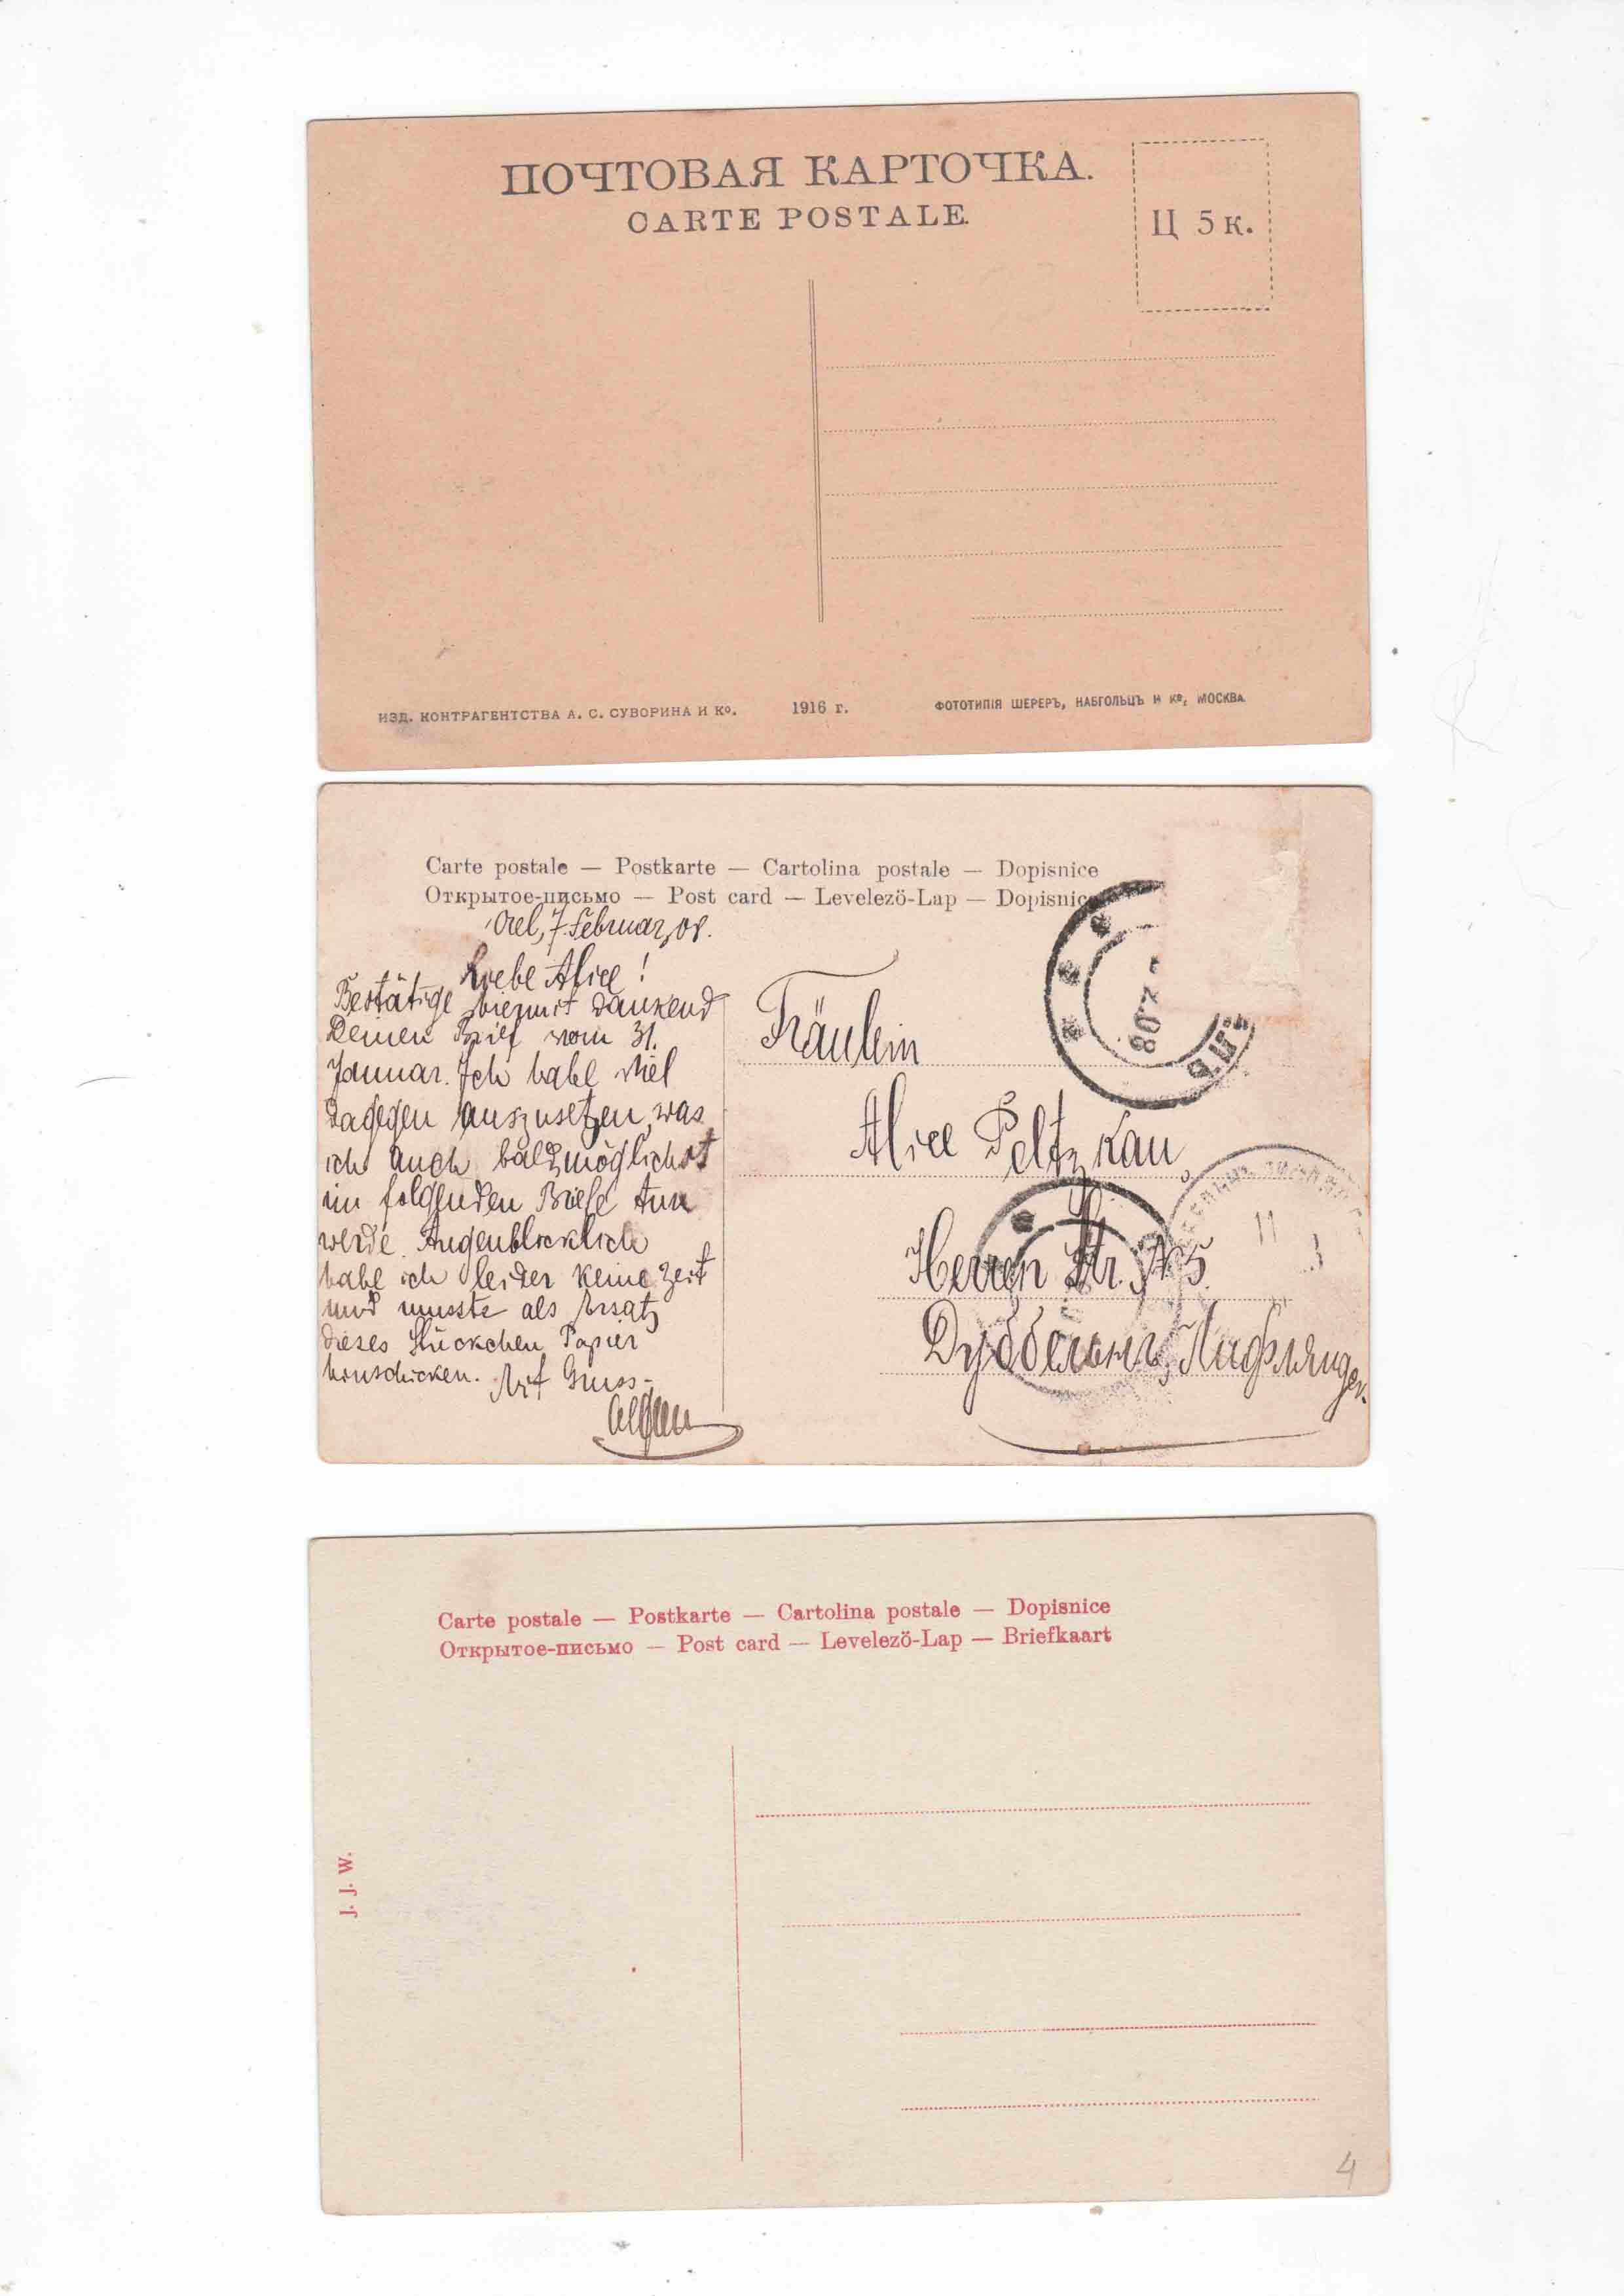 ПОЧТОВАЯ КАРТОЧКА.
CARTE POSTALE.
Ц 5 к.
ИЗД. КОНТРАГЕНТСТВА А. С. СУВОРИНА И Кº.
1916 г.
ФОТОТИПІЯ ШЕРЕРЪ, НАБГОЛЬЦЪ И Кº, МОСКВА.
Carte postale — Postkarte — Cartolina postale — Dopisnice
Открытое-письмо — Post card — Levelezö-Lap — Dopisnice
Orel, 7. Februar, 08.
Liebe Alice!
Bestätige hiermit dankend
Deinen Brief vom 31.
Januar. Ich habe viel
dagegen auszusetzen, was
ich auch baldmöglichst
im folgenden Briefe tun
werde. Augenblicklich
habe ich leider keine Zeit
und musste als Ersatz
dieses Stückchen Papier
hinschicken. Mit Gruss-
Fräulein
Alice Peltzkau,
Herren Str. № 5.
Дуббельнъ, Лифляндск.
2.08
11
Carte postale — Postkarte — Cartolina postale — Dopisnice
Открытое-письмо — Post card — Levelezö-Lap — Briefkaart
J. J. W.
4